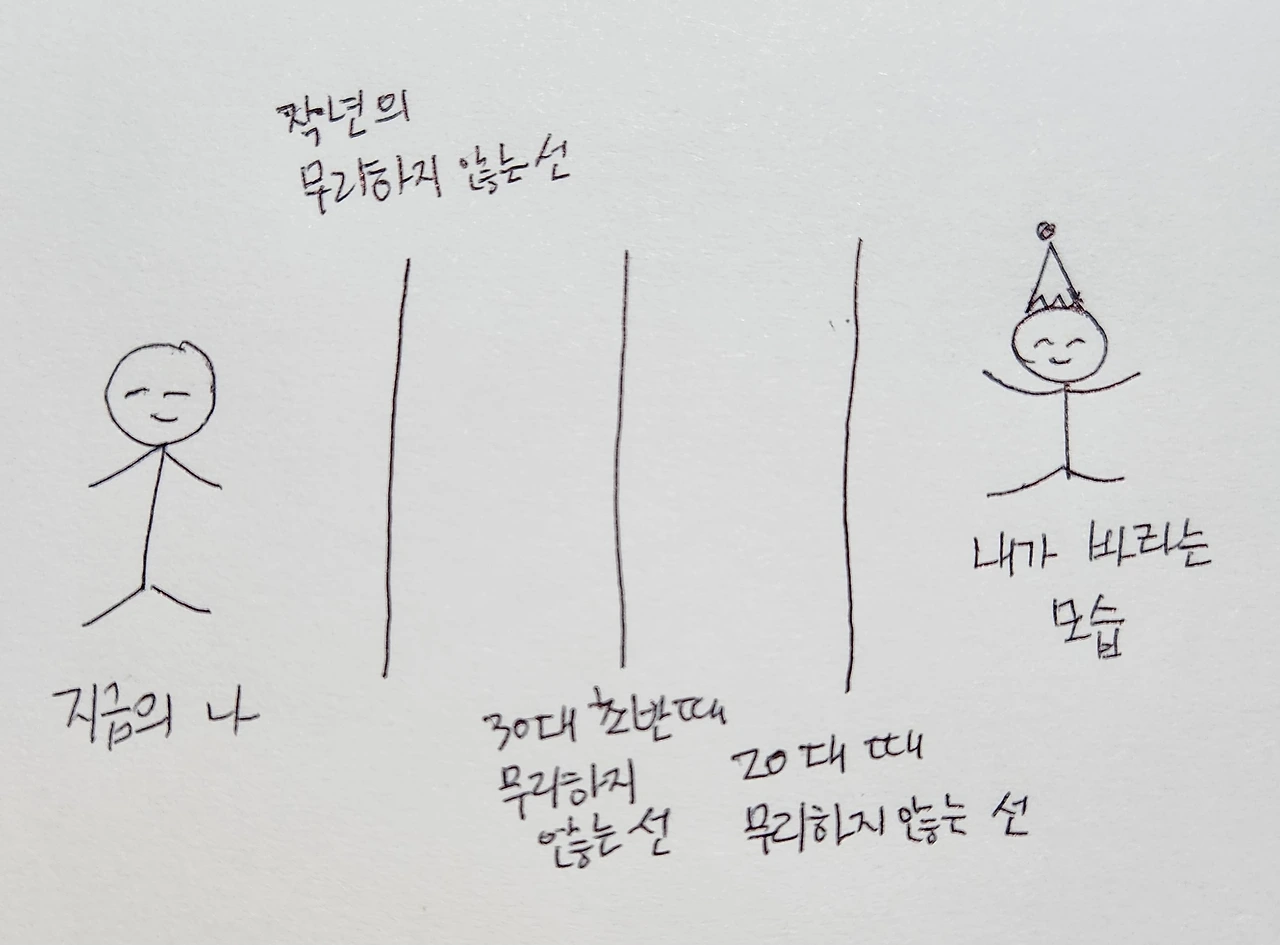 작년의
무리하지 않는 선
지금의 나
30대 초반때
무리하지
않는 선
20대 때
무리하지 않는 선
내가 바라는
모습